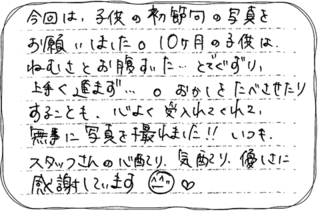 今回は、子供の初節句の写真を
お願いしました。10ヶ月の子供は、
ねむさとお腹すいた…とでぐずり、
上手く進まず…。おかしをたべさせたり
することも、心よく受入れてくれて、
無事に写真を撮れました!! いつも、
スタッフさんの心配り、気配り、優しさに
感謝しています